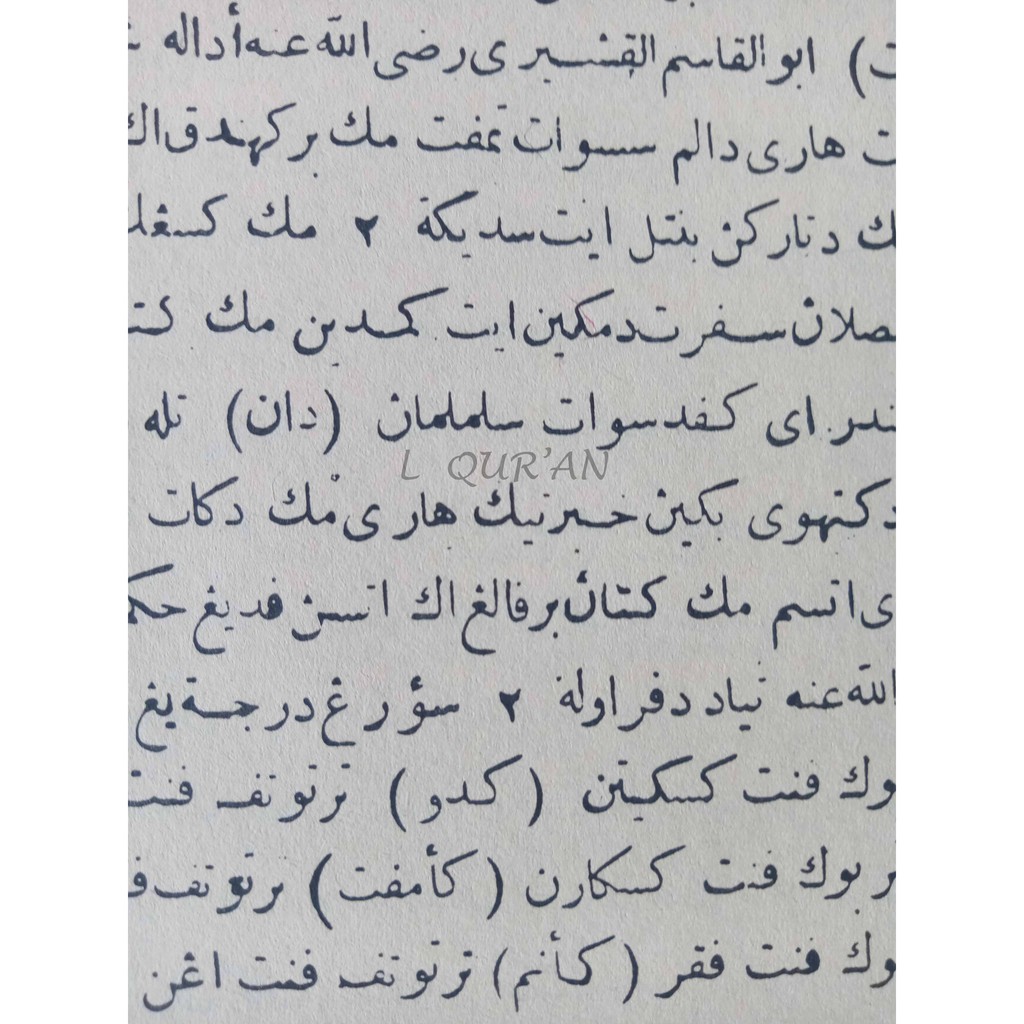 ت) ابو القاسم القشيري رضى الله عنه أداله
ت هاري دالم سسوات تمفت مك بركهندق اك
ك دناركن بنتل ايت سديكة ٢ مك كسڠك
صلان سفرت دمكين ايت كمدين مك كت
ندراي كفد سوات سلملمان (دان) تله
L QUR'AN
دكتهوي بكين خبرنيك هاري مك دكات
ى اتسم مك كتان برفالغ اك اتسن فد يڠ حكم
الله عنه تياد دفراوله ٢ سؤرڠ درجة يڠ
وك فنت كسكيتن (كدو) ترتوتف فنت
ربوك فنت كسكارن (كأمفت) ترتوتف ف
وك فنت فقر (كأنم) ترتوتف فنت اڠن